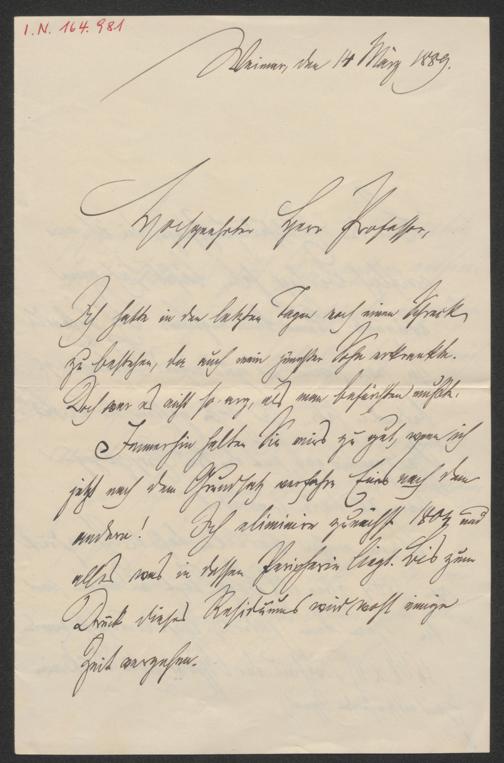 I. N. 164.981
Weimar, den 14 März 1889.
Hochgeehrter Herr Professor,
Ich hatte in den letzten Tagen noch einen Schreck
zu bestehen, da auch mein jüngster Sohn erkrankte.
Doch war es nicht so arg, als man befürchten mußte.
Immerhin halten Sie mirs zu gut, wenn ich
jetzt nach dem Grundsatz verfahre Eins nach dem
andern! Ich eliminire zunächst und
alles was in dessen Peripherie liegt. Bis zum
Druck dieses Residuums wird wohl einige
Zeit vergehen.